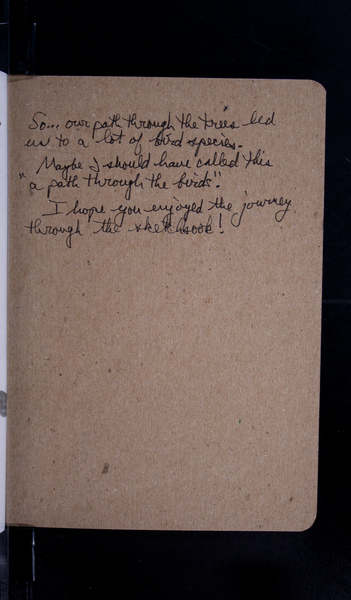 So... our path through the trees led
us to a lot of bird species.
Maybe I should have called this
"a path through the birds".
I hope you enjoyed the journey
through the sketchbook!